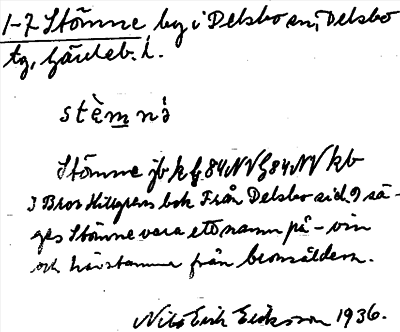 1-7 Stömne by i Delsbo sn, Delsbo
tg, Gävleb. l.
stè̀m nə̀
Stömne jb k f 84 NV f 84 NV kb
I Bror Hillgrens bok Från Delsbo sid. 9 sä-
ges Stömne vara ett namn på - vin
och härstamma från bronsåldern.
Nils Erik Eriksson 1936.